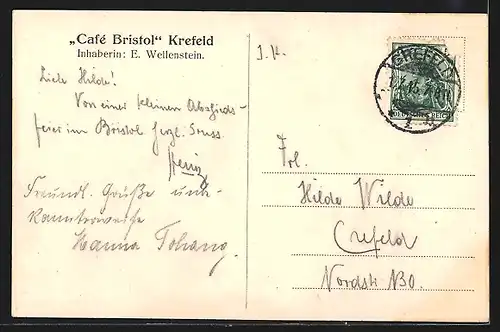 „Café Bristol“ Krefeld
Inhaberin: E. Wellenstein.
Liebe Hilde!
Von einer kleinen Abschieds-
feier im Bristol herzl. Gruss
Heinz
Freundl. Grüße unbe-
kannterweise
Hanna
CREFELD
DEUTSCHES REICH
Frl.
Hilde Wilde
Crefeld
Nordstr. 130.